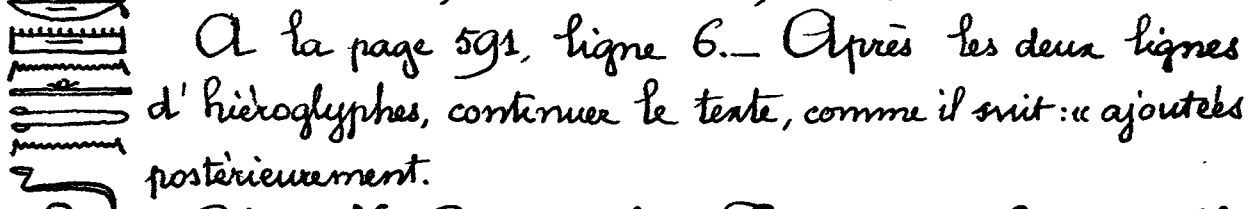 A la page 591, ligne 6._ Après les deux lignes
d'hiéroglyphes, continuer le texte, comme il suit: « ajoutées
postérieurement.